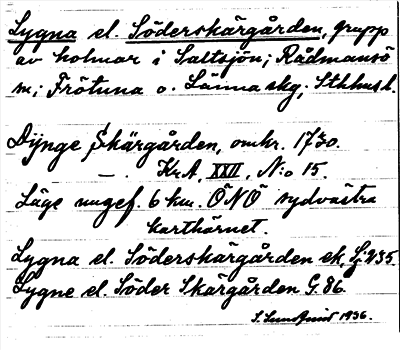 Lygna el. Söderskärgården, grupp
av holmar i Saltsjön; Rädmansö
sn; Frötuna o. Länna skg; Sthhusl.
Dÿnge Skärgården, omkr. 1730.
— . Kr.A. XXII, N:o 15.
Läge ungef. 6 km. ÖNÖ sydvästra
karthörnet.
Lygna el. Söderskärgården ek.
Lygne el. Söder Skärgården G. 86.
1936.